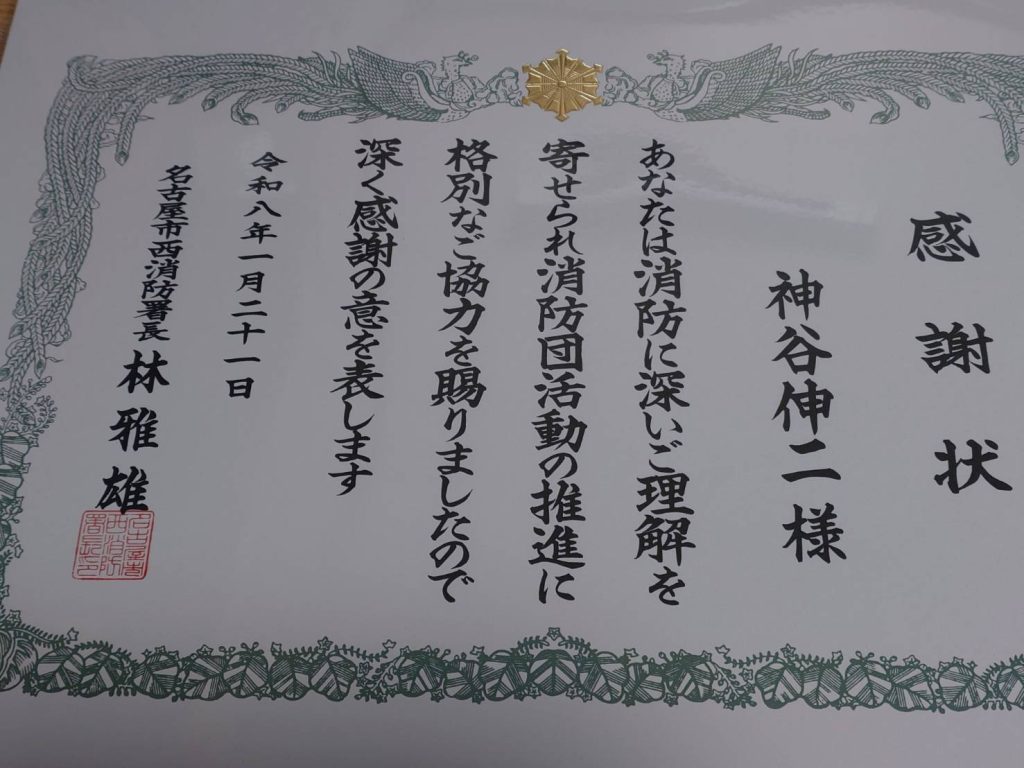 感謝状
神谷伸二様
あなたは消防に深いご理解を
寄せられ消防団活動の推進に
格別なご協力を賜りましたので
深く感謝の意を表します
令和八年一月二十一日
名古屋市西消防署長 林雅雄